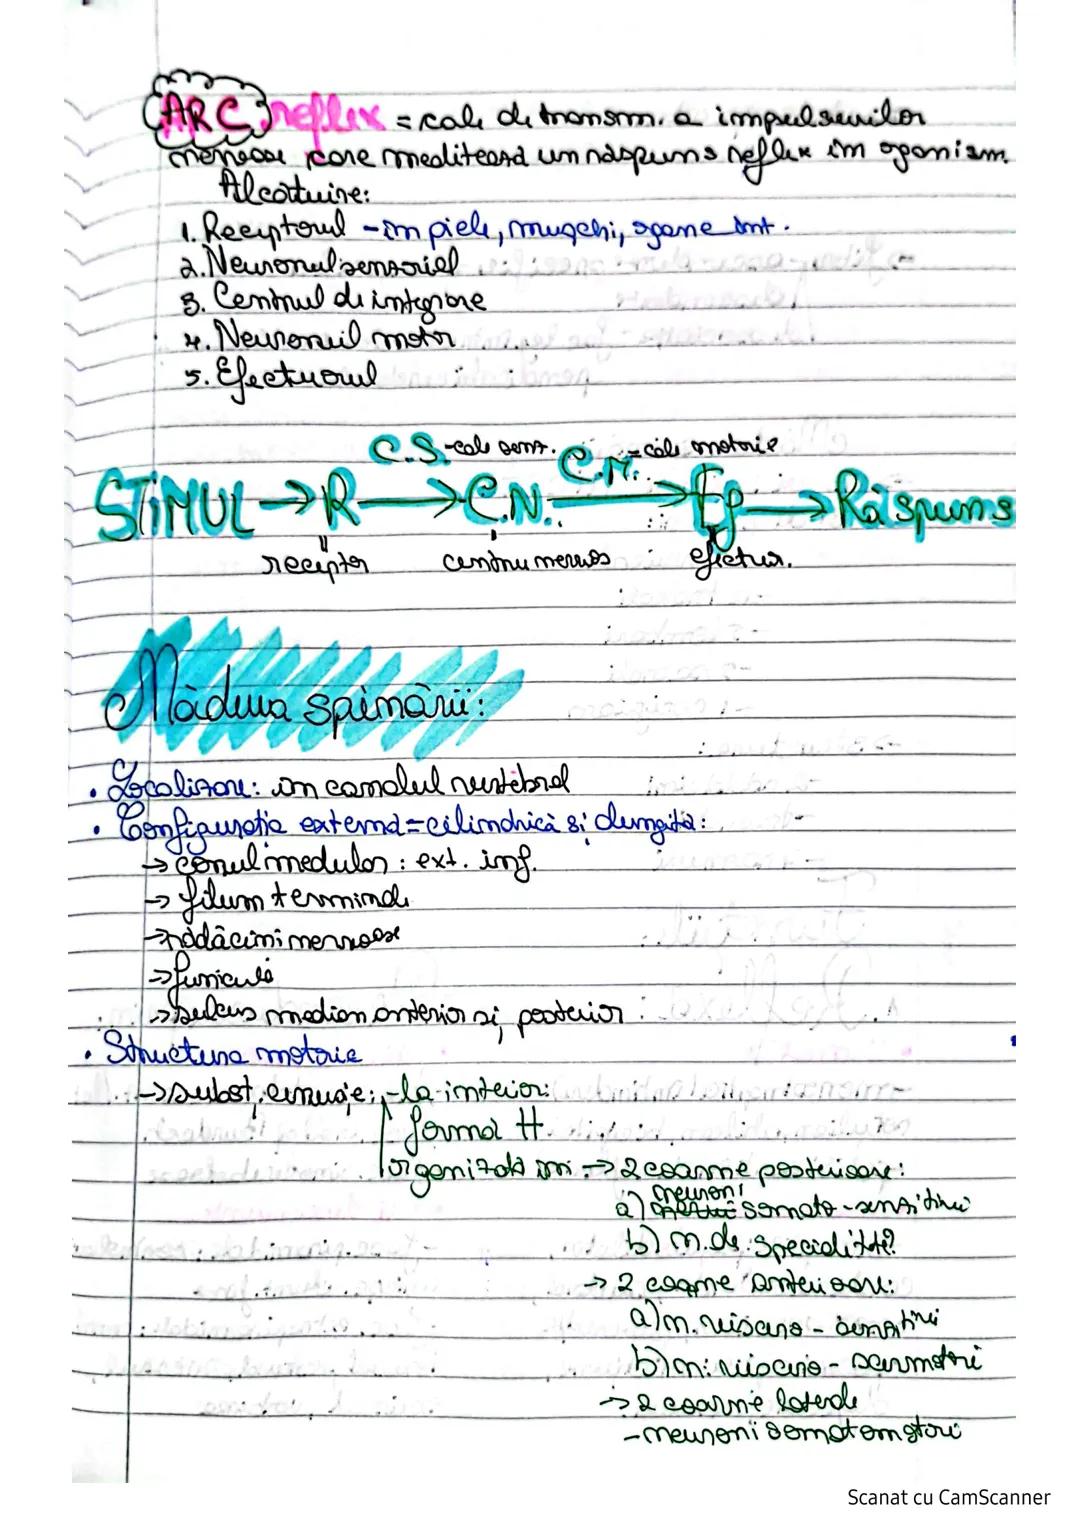 ARC reflex = cale de transm. a impulsurilor
nervoase care meditează un răspuns reflex în organism.
Alcătuire:
1. Receptorul - în piele, mușchi, organe int.
2. Neuronul senzorial
3. Centrul de integrare
4. Neuronul motor
5. Efectuorul
C.S. - cale senz. C.M. = cale motorie
STIMUL → R → C.N. → Ef → Răspuns
receptor centru nervos efectur.
Măduva spinării:
• Localizare: în canalul vertebral
• Configurația externă = cilindrică și alungită:
→ conul medular: ext. inf.
→ filum terminale
→ rădăcini nervoase
→ funicule
→ sulcus median anterior și posterior
• Structura motorie
→ subst. cenușie: - la interior:
forma H
organizată în: → 2 coarne posterioare:
a) neuroni somato-senzitivi
b) n. de specialitate?
→ 2 coarne anterioare:
a) n. viscero-senzitivi
b) n. viscero-
→ 2 coarne laterale
- neuroni somatomotori
Scanat cu CamScanner